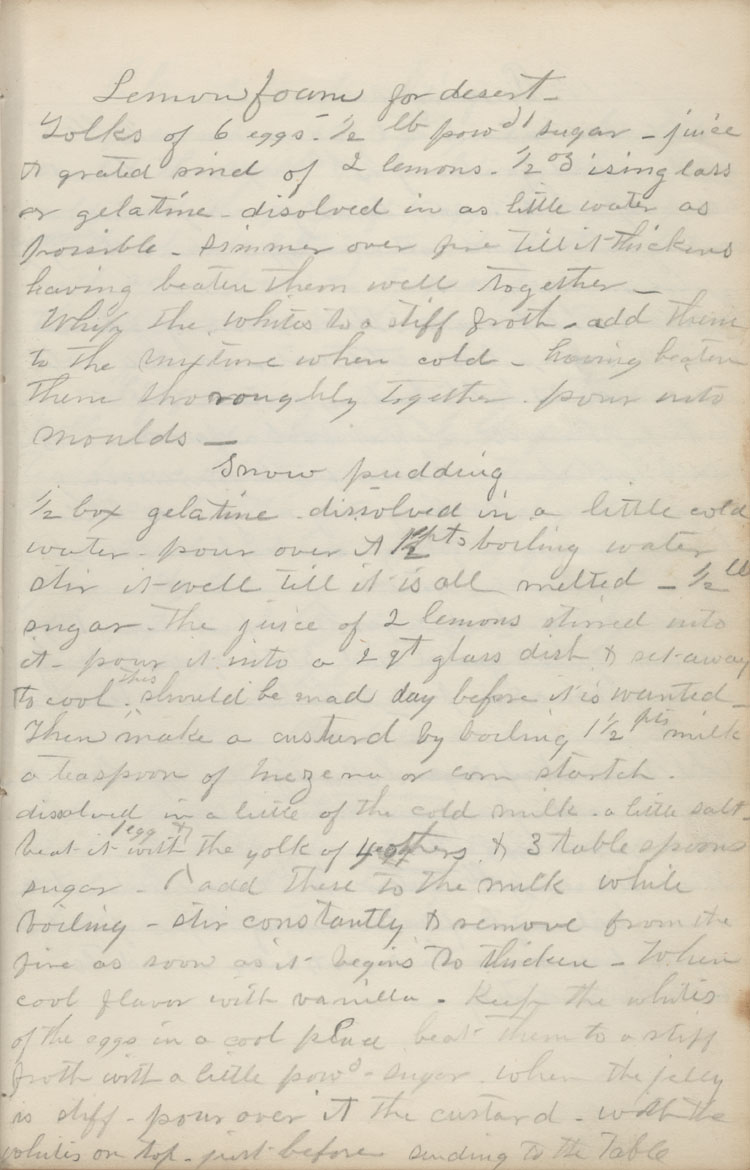 Lemon foam for desert -
Yolks of 6 eggs - 1/2 lb powd sugar - juice
& grated rind of 2 lemons - 1/2 oz isinglass
or gelatine - disolved in as little water as
possible - simmer over fire till it thickens
having beaten them well together -
Whip the whites to a stiff froth - add them
to the mixture when cold - having beaten
them thoroughly together - pour into
moulds -
Snow pudding
1/2 box gelatine - dissolved in a little cold
water - pour over it pts boiling water
stir it well till it is all melted - 1/2 lb
sugar - the juice of 2 lemons stirred into
it - pour it into a 2 qt glass dish & set away
to cool - this should be mad day before it is wanted -
Then make a custard by boiling 1 1/2 pts milk
a teaspoon of Mezena or corn starch -
dissolved in a little of the cold milk - a little salt -
beat it with 1 egg & the yolk of 4 others & 3 table spoons
sugar - add these to the milk while
boiling - stir constantly & remove from the
fire as soon as it begins to thicken - When
cool flavor with vanilla - Keep the whites
of the eggs in a cool place beat them to a stiff
froth with a little powd - sugar - when the jelly
is stiff - pour over it the custard - with the
whites on top - just before sending to the Table